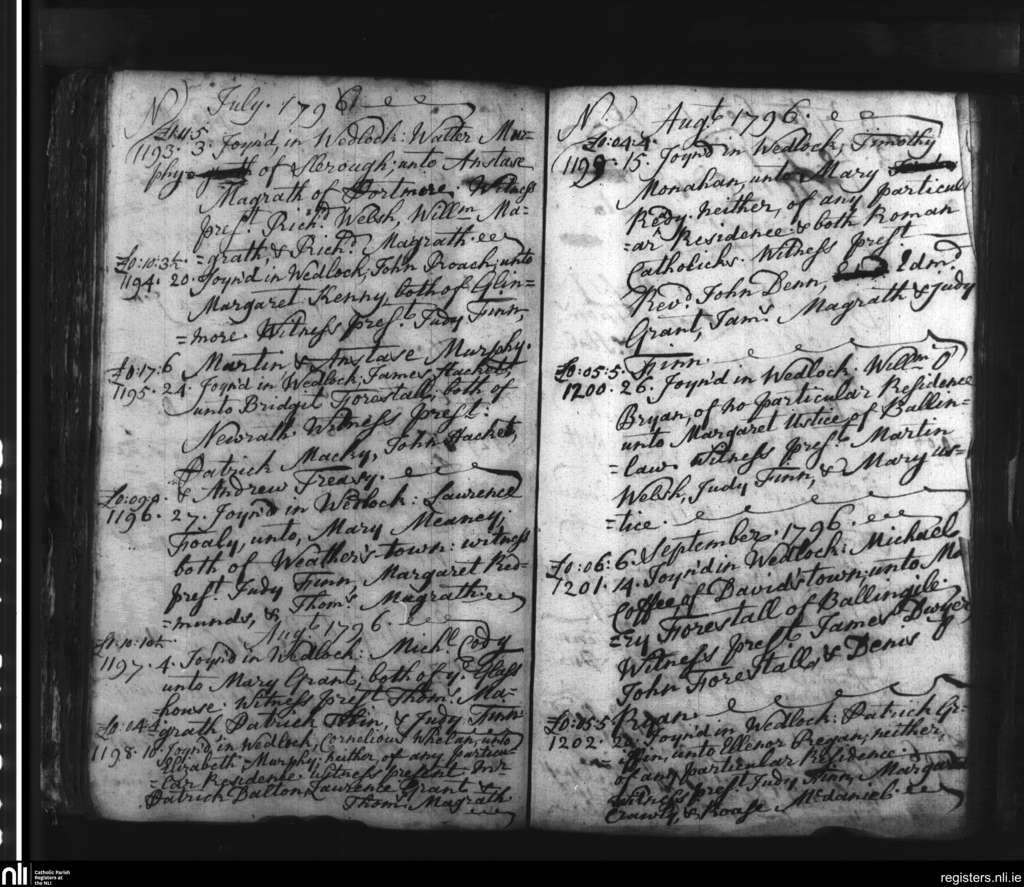 N. July. 1796.
£1:4:5
1193. 3. Joyn'd, in Wedlock: Walter Mur=
phy of Slerough; unto Anstase
Magrath of Portmore. Witness
pres.t Rich.d Welsh, Will.m Ma=
=grath, & Rich.d Magrath.
£0:10:3½.
1194. 20. Joyn'd in Wedlock, John Proach, unto
Margaret Kenny, both of Glin=
=more. Witness pres.t Judy Finn,
Martin & Anstase Murphy.
£0:17:6
1195. 24. Joyn'd in Wedlock; James Hacket,
unto Bridgit Forestall; both of
Newrath. Witness pres.t
Patrick Macky, John Hacket,
& Andrew Treasy.
£0:09:9.
1196. 27. Joyn'd in Wedlock: Lawrence
Foaly, unto, Mary Meaney;
both of Weather's-town: witness
pres.t Judy Finn, Margaret Red=
=munds, & Thom.s Magrath.
Aug.t 1796.
£1:10:10½.
1197. 4. Joyn'd in Wedlock: Mich.l Cody
unto Mary Grant; both of y.e Glass
=house. Witness pres.t Thom.s Ma=
=grath Patrick Tobin, & Judy Finn
1198. 10. Joyn'd, in Wedlock, Cornelious Whelan, unto
Elizabeth Murphy; neither of any Particu=
=lar Residence. Witness present Mr
Patrick Dalton, Lawrence Grant &
Thom.s Magrath
N. Aug.t 1796.
£0:04:4.
1199. 15. Joyn'd in Wedlock; Timothy
Monahan, unto Mary
Redy. neither, of any particul
=ar Residence & both Roman
Catholicks. Witness pres.t
Rev.d John Denn, Edm.d
Grant, Jam.s Magrath & Judy
Finn.
£0:05:5.
1200. 26. Joyn'd in Wedlock. Will.m O
Bryan, of no particular Residence
unto Margaret Ustice of Ballin=
=law. Witness pres.t Martin
Welsh, Judy Finn, & Mary us=
=tice.
September. 1796.
£0:06:6.
1201. 14. Joyn'd in Wedlock: Michael
Coffee of David's town; unto Ma
=ry Forestall of Ballingile.
Witness pres.t James Dwyer
John Forestall & Denis
Ryan
£0:05:5
1202. Joyn'd in Wedlock: Patrick Gr=
=iffen, unto Ellenor Regan; neither,
of any particular Residence.
witness pres.t Judy Finn, Margaret
Crawly, & Roase McDaniel.
nli
Catholic Parish
Registers at
the NLI
registers.nli.ie